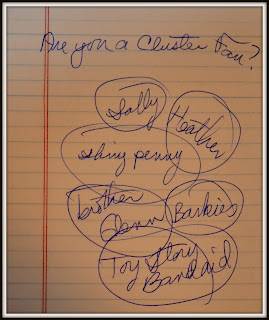 Are you a Cluster Fan?
Sally
Heather
Shiny penny
brother
Glenn
Barbies
Toy Story
Bandaid